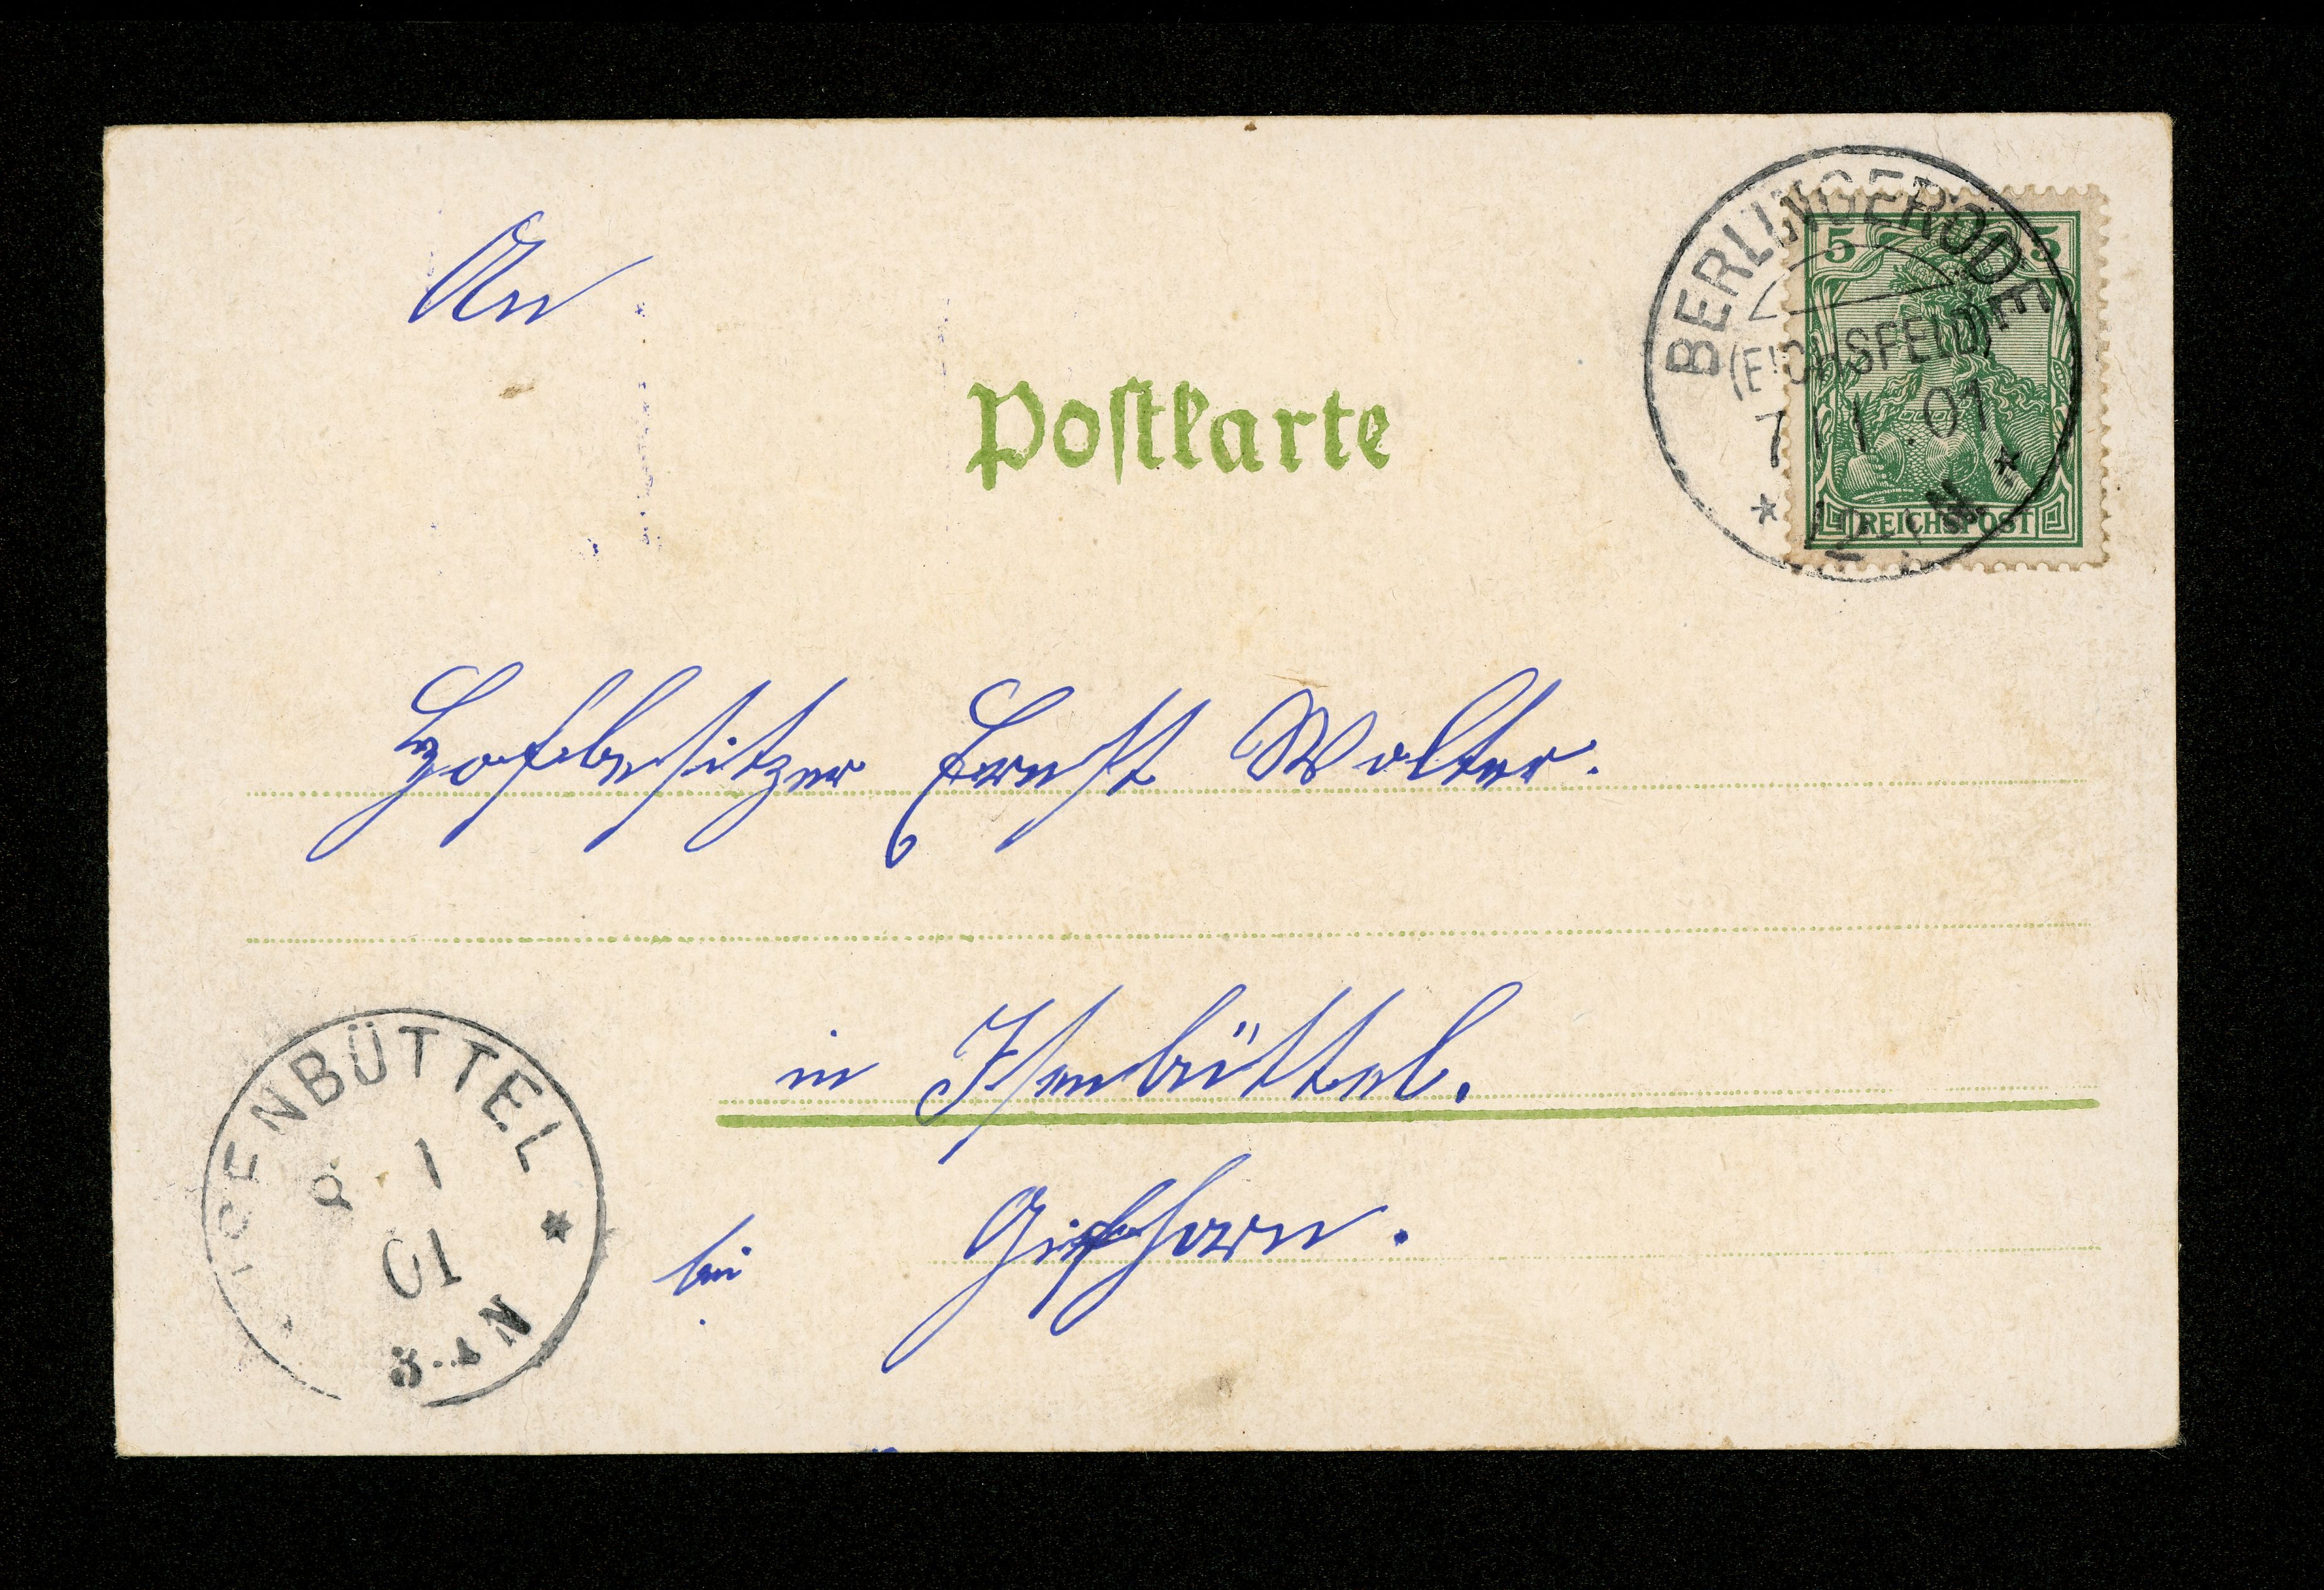 An
Postkarte
BERLINGERODE
(EICHSFELD)
7 1 .01
5 5
REICHSPOST
Hofbesitzer Ernst Wolter.
in Isenbüttel.
bei Gifhorn.
ISENBÜTTEL
8 1
01
N